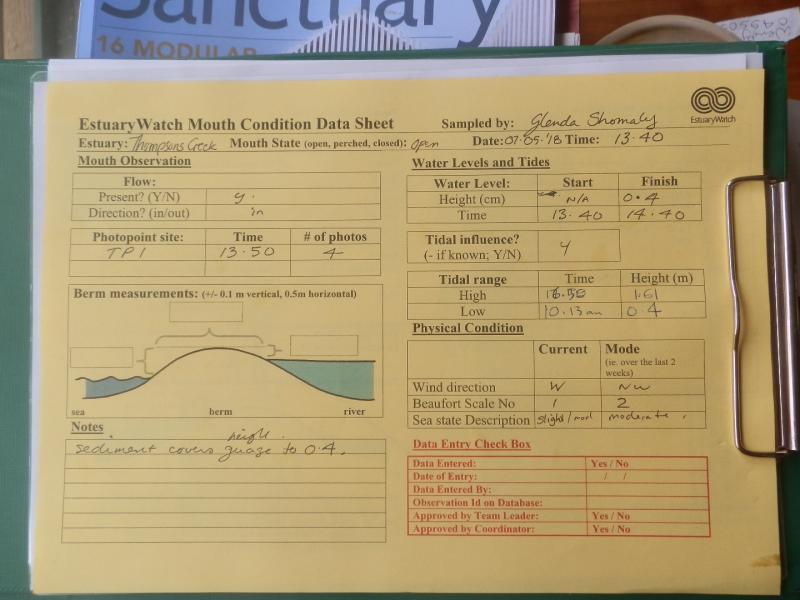 Sanctuary
16 MODULAR
EstuaryWatch Mouth Condition Data Sheet Sampled by: Glenda Shomaly
EstuaryWatch
Estuary: Thompsons Creek Mouth State (open, perched, closed): open Date: 07.05.'18 Time: 13.40
Mouth Observation
Flow:
Present? (Y/N) y.
Direction? (in/out) in
Photopoint site: Time # of photos
TP1 13.50 4
Berm measurements: (+/- 0.1 m vertical, 0.5m horizontal)
sea berm river
Notes
height.
sediment covers guage to 0.4.
Water Levels and Tides
Water Level: Start Finish
Height (cm) N/A 0.4
Time 13.40 14.40
Tidal influence?
(- if known; Y/N) Y
Tidal range Time Height (m)
High 1.61
Low 10.13 am 0.4
Physical Condition
Current Mode
(ie. over the last 2
weeks)
Wind direction W NW
Beaufort Scale No 1 2
Sea state Description slight / mod moderate
Data Entry Check Box
Data Entered: Yes / No
Date of Entry: / /
Data Entered By:
Observation Id on Database:
Approved by Team Leader: Yes / No
Approved by Coordinator: Yes / No